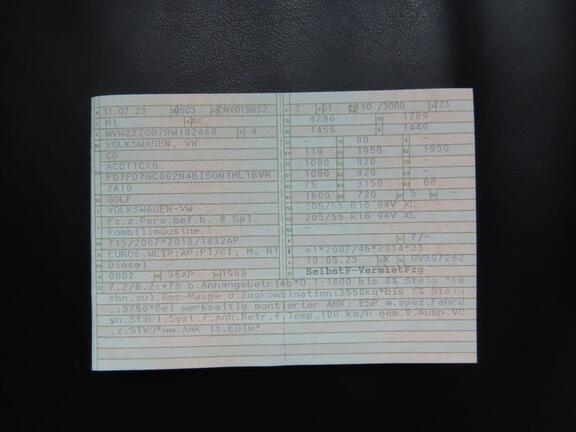 31.07.23 0603 CNX019652 2 01 110 /3000 723
M1 AC 4286 1789
WVWZZZCD7RW102468 4 1455 1449
VOLKSWAGEN, VW - 80 -
CD 119 1950 1950
ACDTTCX0 1080 920 -
FD7FD7GC002N4BISON1ML1BVR 1080 920 -
2A10 75 3150 68
GOLF 1600 720 5 -
VOLKSWAGEN-VW 205/55 R16 94V XL
Fz.z.Pers.bef.b. 8 Spl. 205/55 R16 94V XL
Kombilimousine -
715/2007*2018/1832AP 7/-
EURO6;WLTP;AP;PI/CI; M, N1 e1*2007/46*2014*23
Diesel 10.05.23 K GV397282
0002 36AP 1968 SelbstF-VermietFzg
7.2/8.2:+75 b.Anhängebetrieb*O.1:1800 bis 8% Steig.*te
chn.zul.Ges-Masse d.Zugkombination:3550kg*bis 8% Steig
.:3750*Bei werkseitig montierter AHK: ESP m.spez.Fahrd
yn.Stabi.Syst.f.Anh.Betr.f.Temp.100 km/h gem.9.Ausn.VO
.z.STVO*ww.AHK lt.EGTG*